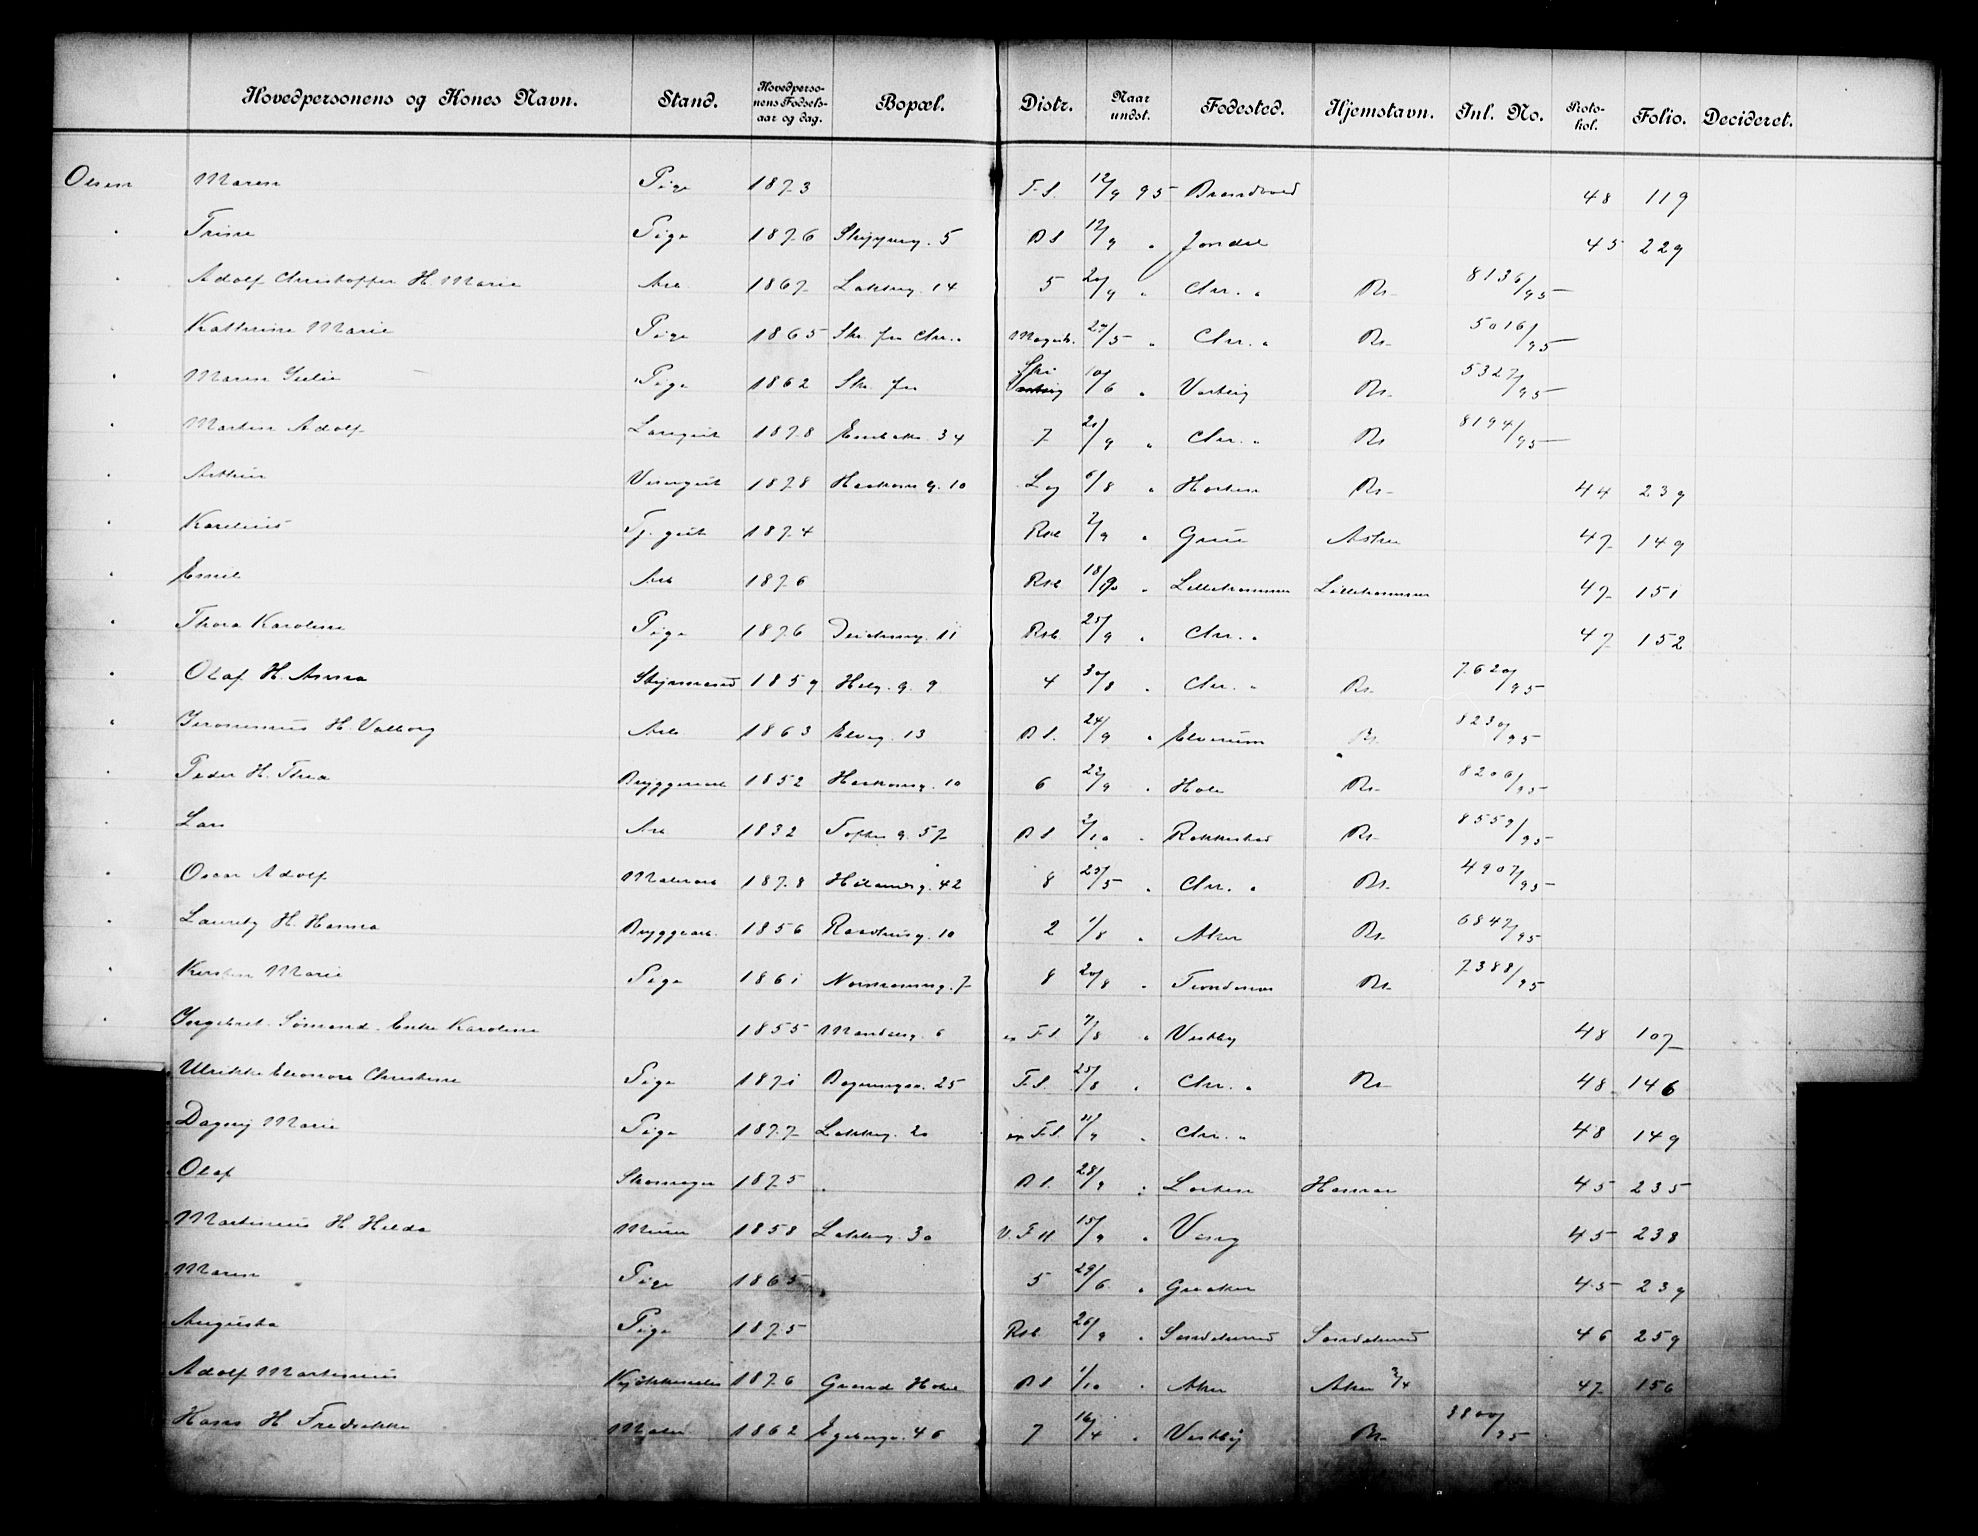 Hovedpersonens og Kones Navn. Stand. Hovedperso-nens Fødsels-aar og dag. Bopæl. Distr. Naar undst. Fødested. Hjemstavn. Inl. No. Proto-kol. Folio. Decideret.
Olsen Maren Pige 1873 F.S. 12/9 95 Brandvold 48 119
" Trine Pige 1876 5 B S 12/9 " 45 229
" Adolf Christoffer H. Marie Arb 1867 Lakkeg. 14 5 20/9 " Chr. " Br. 8136/95
" Kathrine Marie Pige 1865 Skr. fra Chr. " Magistr. 29/5 " Chr. " Br. 5016/95
" Maren Julie Pige 1862 Skr. fra 10/6 " Vestby Br. 5327/95
" Martin Adolf Løbegut 1878 34 7 21/9 " Chr. " Br. 8194/95
" Arthur Visergut 1878 Hausmansg. 10 Lag 6/8 " Horten Br. 44 239
" Karelius Tj. gut 1874 Rst. 2/9 " Grue Asker 47 149
" Emil Arb 1876 Rst. 18/9 " Lillehammer Lillehammer 47 151
" Thora Karoline Pige 1876 Deichmansg. 11 Rst. 25/9 " Chr. " 47 152
" Olaf H. Anna Styrmand 1859 Helg. g. 9 4 30/8 " Chr. " Br. 7620/95
" Jeronimus H. Valborg Arb 1863 Elveg. 13 B S. 24/9 " Elverum Br. 8230/95
" Peder H. Thea Bryggeriarb 1852 Hausmansg. 10 6 22/9 " Hole Br. 8206/95
" Lars Arb 1832 Toftes g. 57 B S. 2/10 " Rakkestad Br. 8559/95
" Oscar Adolf Malerarb 1878 42 8 25/5 " Chr. " Br. 4907/95
" Lauritz H. Hanna Bryggearb. 1856 Raadhusg. 10 2 1/8 " Aker Br. 6847/95
" Kirsten Marie Pige 1861 Normannsg. 7 8 20/8 " Trondenes Br. 7388/95
" Ingebret Sømand Enke Karoline 1855 6 F.S. 7/8 " Vestby 48 107
" Ulrikke Eleonora Christine Pige 1871 25 F.S. 25/8 " Chr. " Br. 48 146
Dagny Marie Pige 1877 Lakkeg. 20 F.S. 11/9 " Chr. " 48 149
Olaf Skomager 1875 B S. 28/9 " Løiten Hamar 45 235
Martinius H Hilda Murer 1858 Lakkeg. 30 V. F H. 15/9 " Vang 45 238
Maren Pige 1865 5 29/6 " Greaker 45 239
Augusta Pige 1875 Rst. 26/9 " Søndeland Søndeland 46 259
Adolf Martinius 1876 Grand Hotel B S. 1/10 " Aker Aker 2/4 47 156
Hans H Fredrikke Maler 1862 Egebergs. 46 7 16/4 " Vestby Br. 3800/95